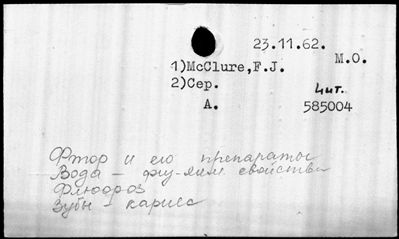 23.11.62.
М.О.
1)McClure,F.J.
2)Сер. Цит.
А. 585004
Фтор и его препараты
Вода - физ-хим свойства
Флюороз
Зубы - кариес